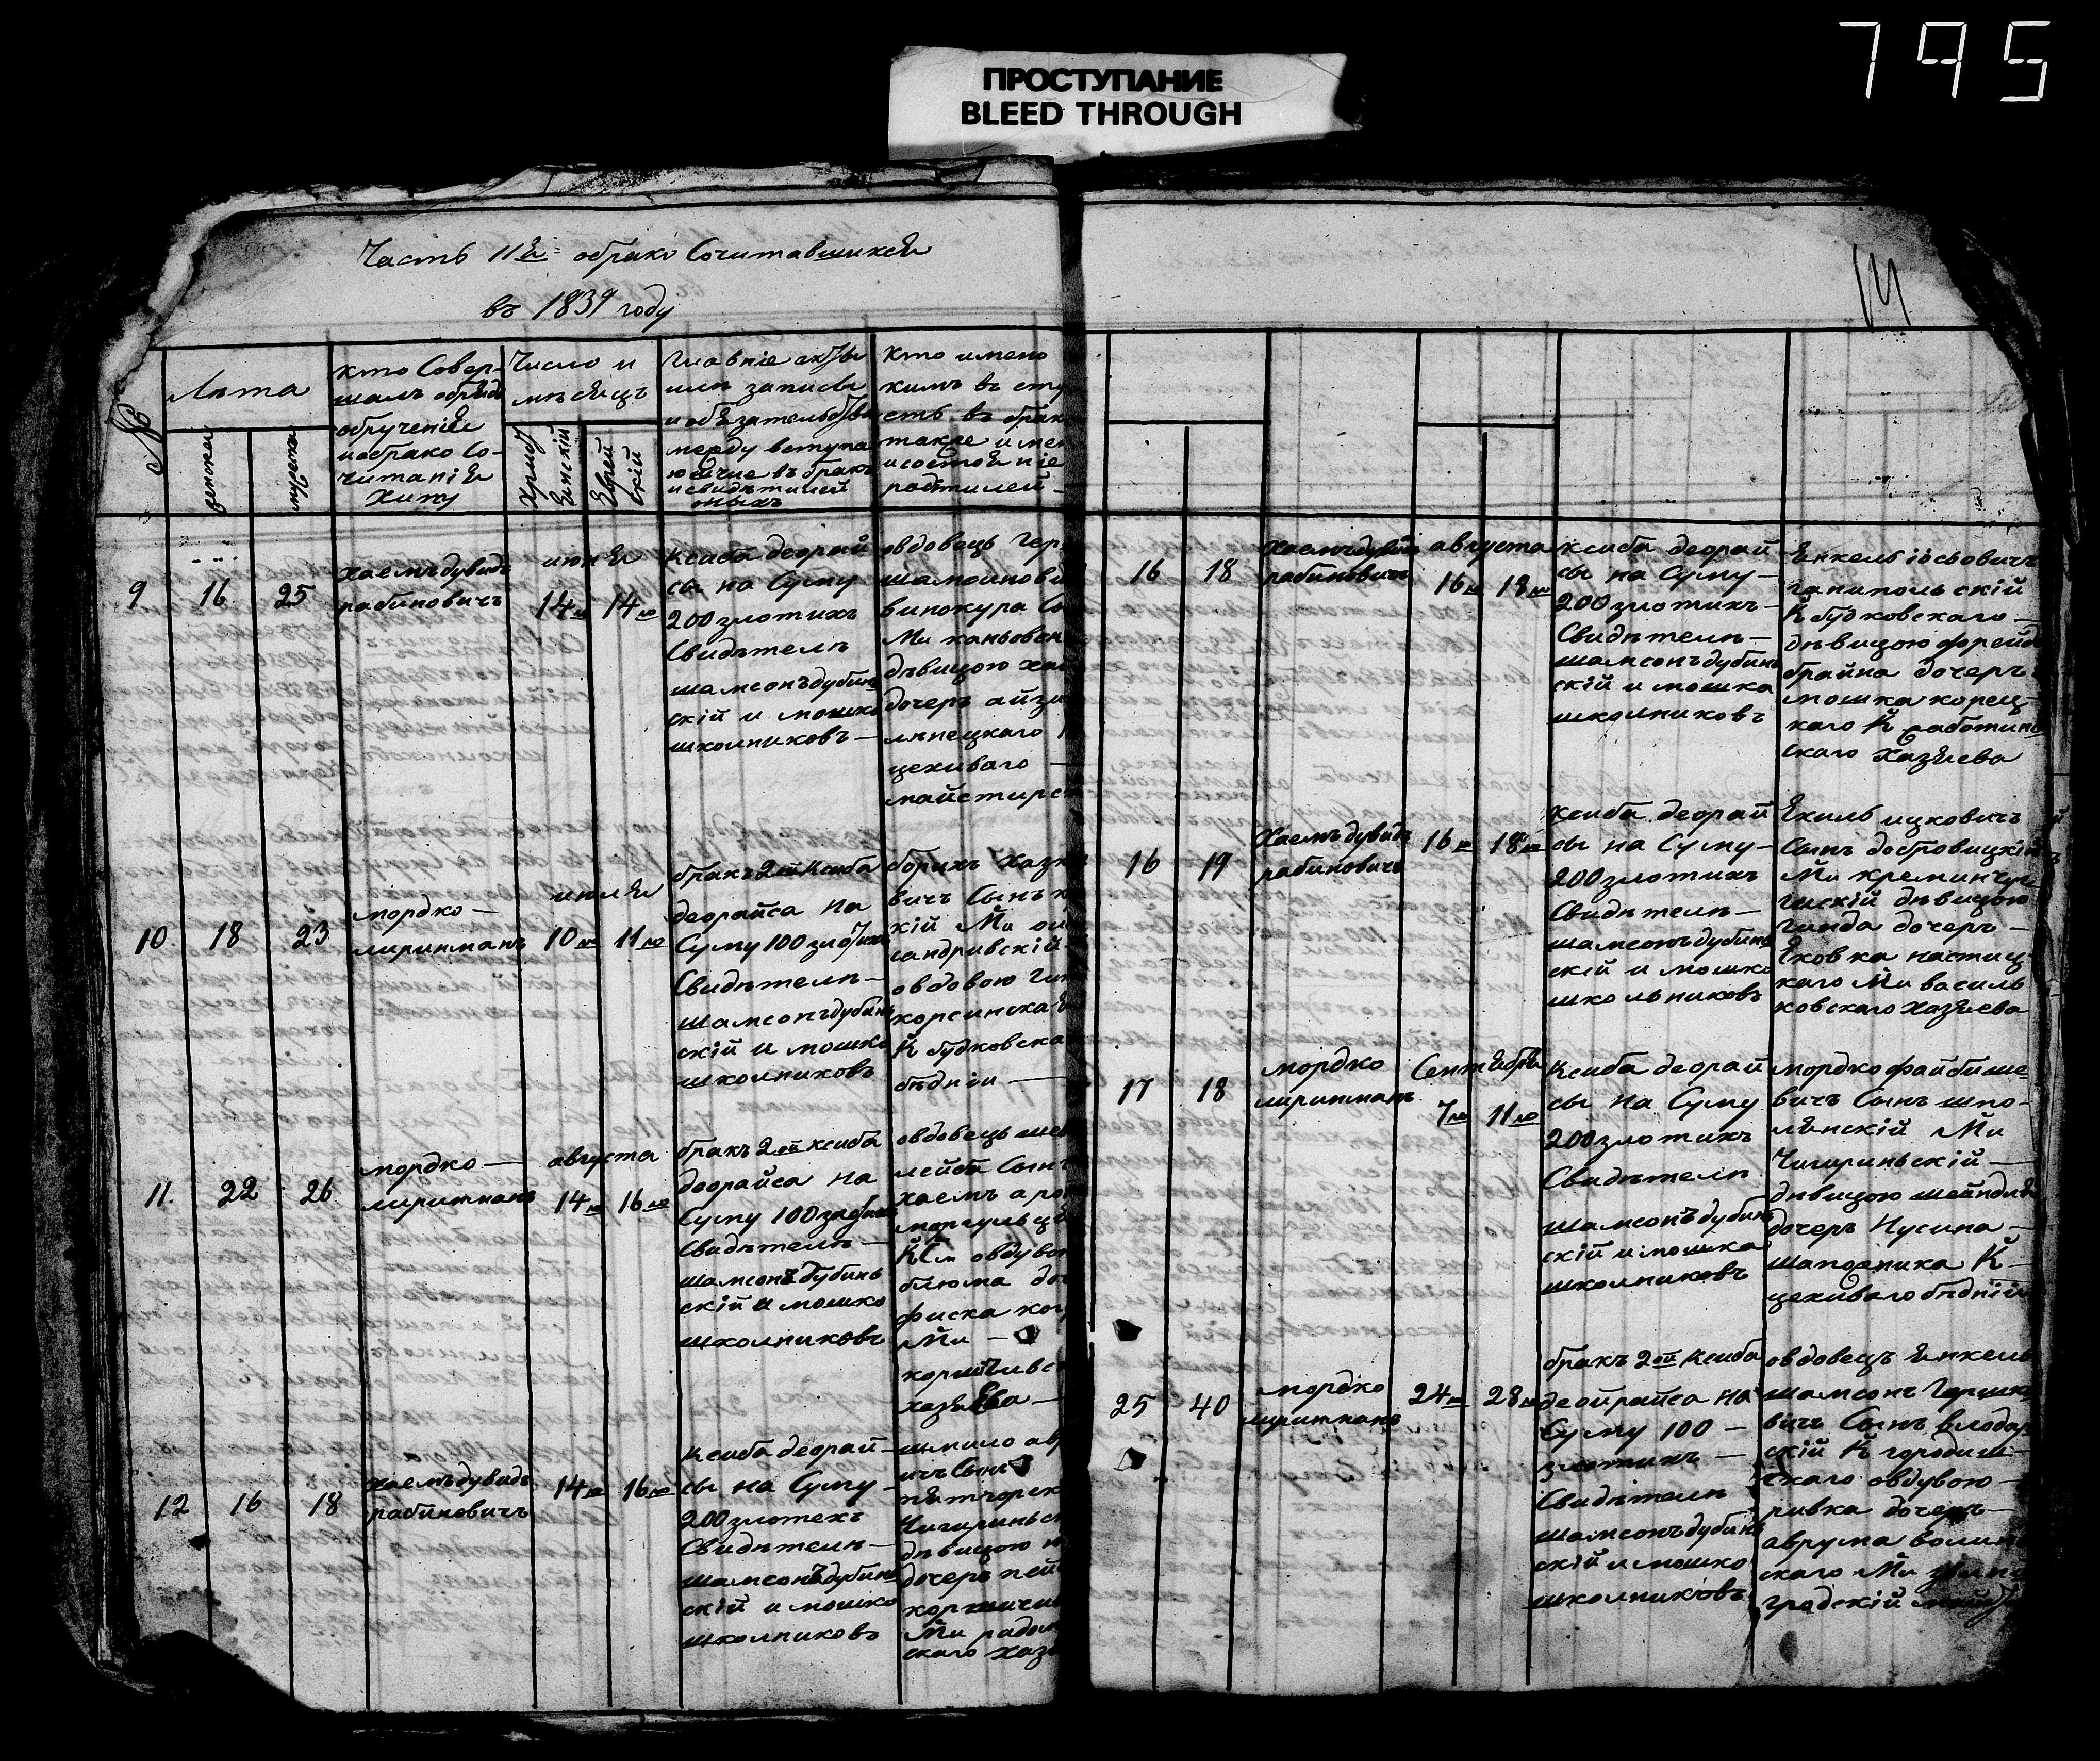 795
ПРОСТУПАНИЕ
BLEED THROUGH
Часть IIя обрако Сочитавшихся
въ 1839 году
14
№
Лѣта
женска
мужска
кто Совер-
шалъ обряд
обрученія
и обрако Со-
читанія
Хипы
Число и
мѣсяцъ
Христ
Еянскій
Еврей
скій
Главніе акты
или записы
и обязательствы
между вступа
ющие въ бракъ
и свидѣтилей
оныхъ
Кто имено
кимъ въ сту
етъ въ брак
также и мен
и состояніе
родѣтилей
9 16 25
хаемъ дувидъ
рабиновичъ
июня
14го 14го
Ксиба деорай
сы на Суму
200 злотихъ
Свидѣтели
шамсонъ дубин
скій и мошко
школниковъ
овдовецъ Гер
шамсинови
винокура Сы
Ми каньован
дѣвицою хая
дочеръ айзи
липецкаго
цехиваго
майстирс
10 18 23
мордко
лиритманъ
июля
10го 11го
бракъ 2ой ксиба
деорайса на
Суму 100 злотихъ
Свидѣтели
шамсонъ дубин
скій и мошко
школниковъ
борихъ хазк
вичъ Сынъ к
кій Ми
сандривскій
овдовою
корсинская
К будковска
бѣдніи
11 22 26
мордко
лиритманъ
августа
14го 16го
бракъ 2ой ксиба
деорайса на
Суму 100 злотихъ
Свидѣтели
шамсонъ дубинь
скій и мошко
школниковъ
овдовецъ
лейба Сынъ
хаемъ аро
овдово
блюма до
фиска
Ми
хазяева
12 16 18
хаемъ дувидъ
рабиновичъ
14го 16го
Ксиба деорай
сы на Суму
200 злотехъ
Свидѣтели
шамсонъ дубин
скій и мошко
школниковъ
шмило авр
ичъ Сынъ
пятигорск
Чигириньск
дѣвицою
дочеръ пей
Ми радом
скаго хазя
16 18
Хаемъ дувидъ
рабиновичъ
августа
16го 18го
ксиба деорай
сы на Суму
200 злотихъ
Свидѣтели
шамсонъ дубин
скій и мошка
школниковъ
Янкель іосьовичъ
гапипольскій
К будковскаго
дѣвицою фрейда
брайна дочеръ
мошка корец
каго К работин
скаго Хазяева
16 19
Хаемъ дувидъ
рабиновичъ
16го 18го
ксиба деорай
сы на Суму
200 злотихъ
Свидѣтели
шамсонъ дубин
скій и мошко
школьниковъ
Ехиль ицковичъ
Сынъ добровицкій
Ми креминчуг
гискій дѣвицою
гинда дочеръ
Яковка настиц
каго Ми василь
ковскаго хазяева
17 18
мордко
лиритманъ
Сентября
7го 11го
Ксиба деорай
сы на Суму
200 злотихъ
Свидѣтели
шамсонъ дубин
скій и мошка
школниковъ
мордко файбише
вичъ Сынъ шпо-
лянскій Ми
Чигириньскій
дѣвицою шейндля
дочеръ Нусина
шапошника К
цехиваго бѣдній
25 40
мордко
лиритманъ
24го 28го
бракъ 2ой ксиба
деойрайса на
Суму 100
злотихъ
Свидѣтели
шамсонъ дубин
скій и мошко
школниковъ
овдовецъ Янкель
шамсонъ Гершко
вичъ Сынъ влодар
скій К городищ
скаго овдувою
ривка дочеръ
аврума волин
скаго Ми
градскій